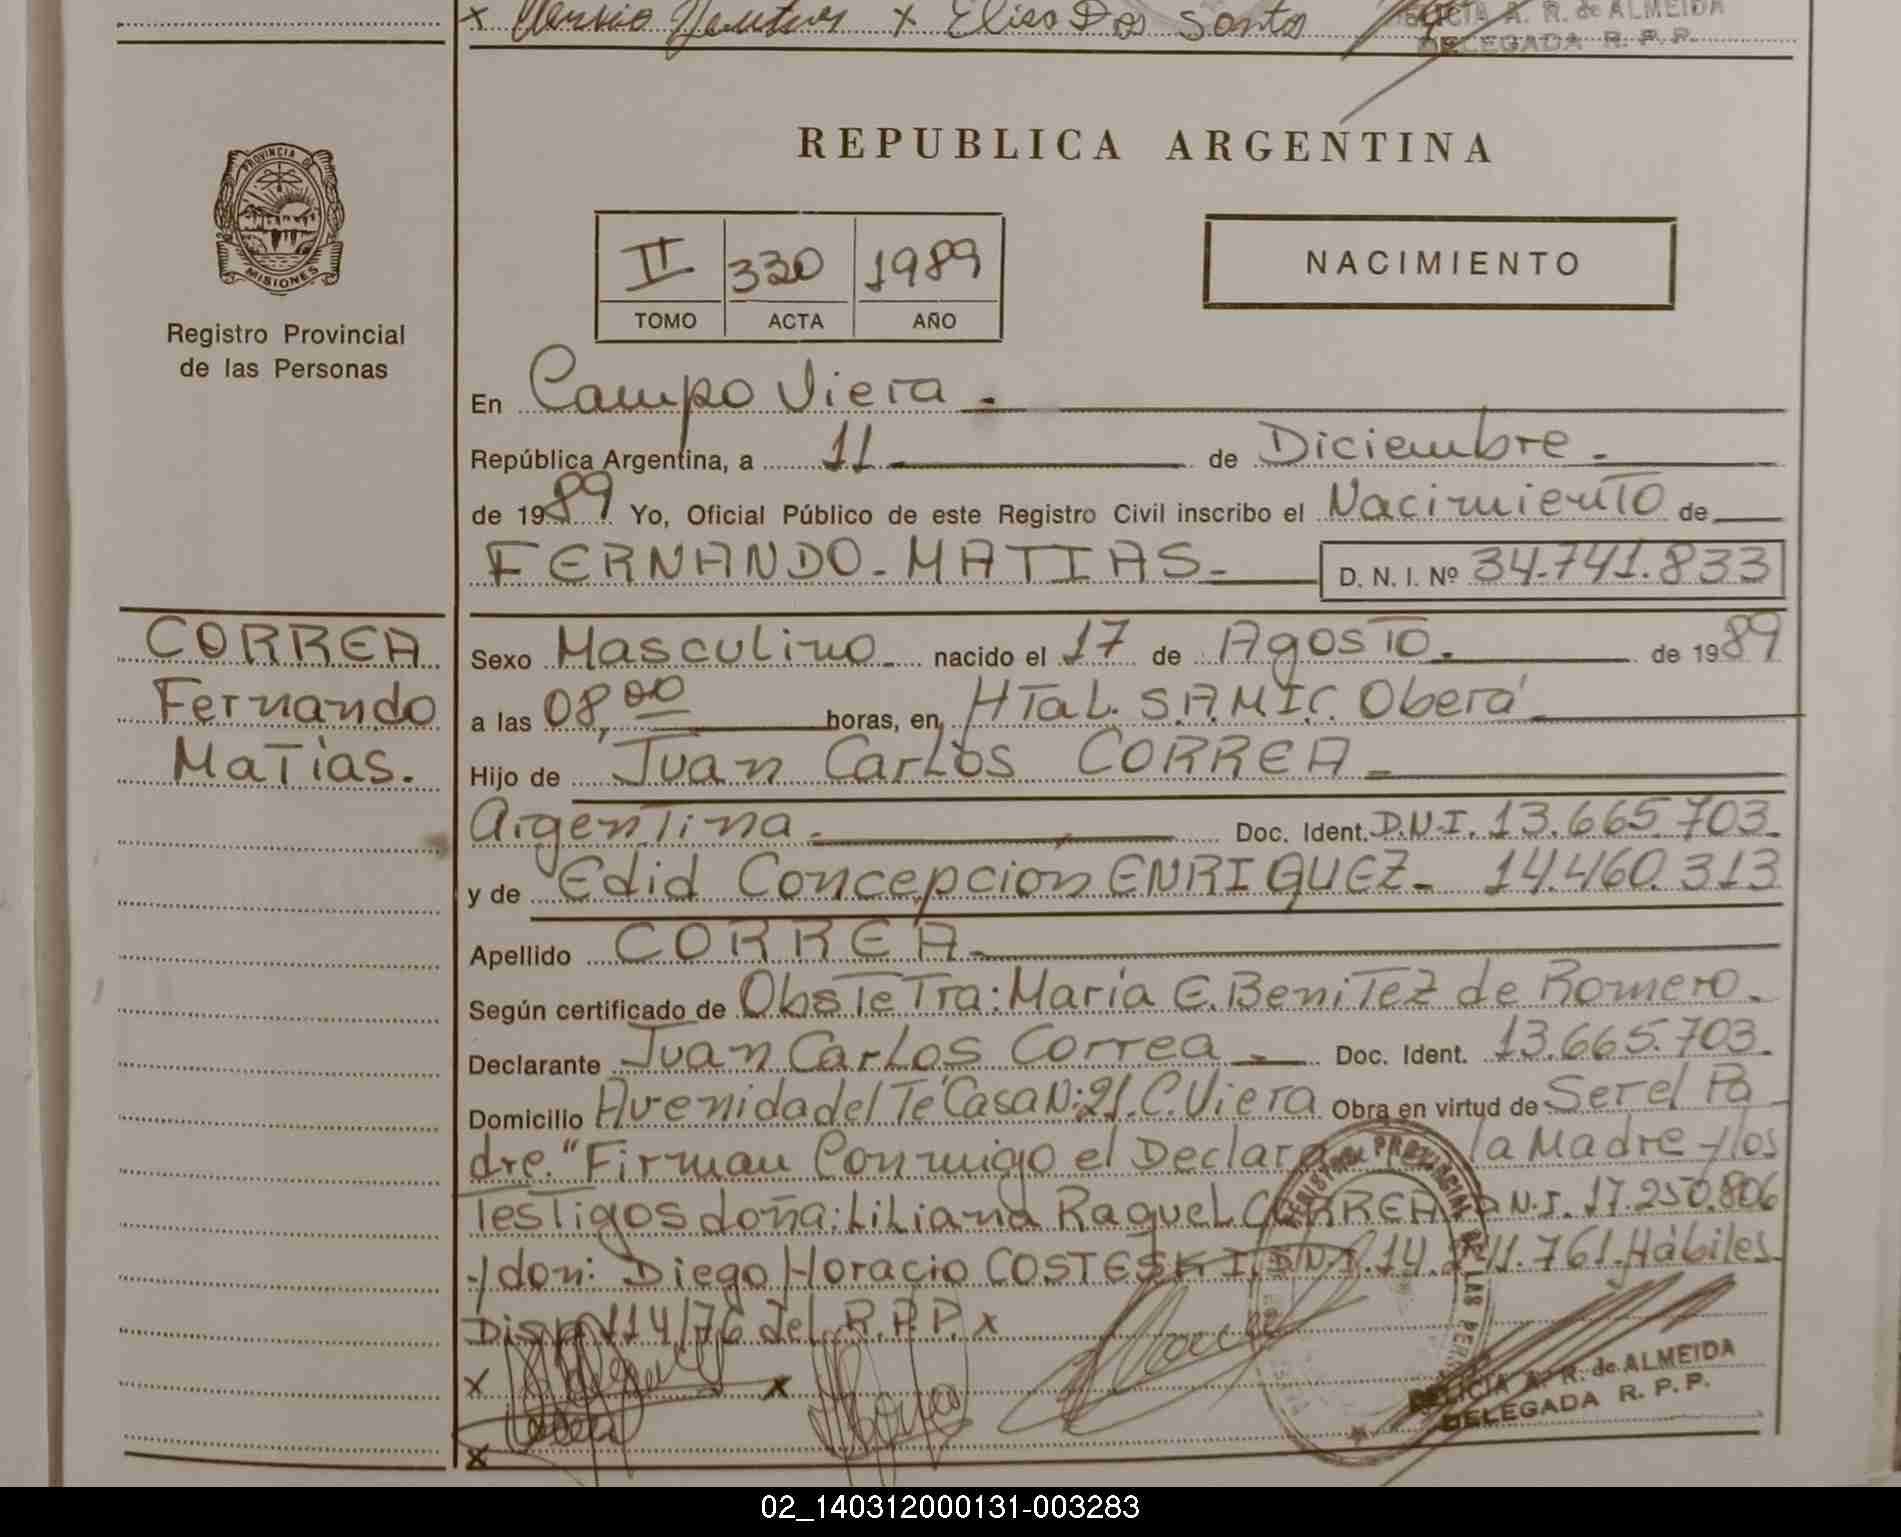 x Elisa Dos Santos
DELICIA A. R. de ALMEIDA
DELEGADA R. P. P.
PROVINCIA DE
MISIONES
Registro Provincial
de las Personas
REPUBLICA ARGENTINA
II 330 1989
TOMO ACTA AÑO
NACIMIENTO
En Campo Viera.
República Argentina, a 11 de Diciembre.
de 1989 Yo, Oficial Público de este Registro Civil inscribo el Nacimiento de
FERNANDO-MATIAS- D. N. I. Nº 34.741.833
CORREA
Fernando
Matias.
Sexo Masculino. nacido el 17 de Agosto. de 1989
a las 08,00 horas, en HTal. S.A.M.I.C. Oberá
Hijo de Juan Carlos CORREA
Argentina. Doc. Ident. D.N.I. 13.665.703.
y de Edid Concepcion ENRIQUEZ- 14.460.313
Apellido CORREA
Según certificado de Obstetra: Maria E. Benitez de Romero.
Declarante Juan Carlos Correa Doc. Ident. 13.665.703.
Domicilio Avenida del Té Casa N: 21. C. Viera Obra en virtud de Ser el Pa
dre. "Firman Conmigo el Declara la Madre y los
Testigos doña: Liliana Raquel CORREA D.N.I. 17.250.806
y don: Diego Horacio COSTESKI. D.N.I. 14. 11.761. Hábiles
Disp. 114/76 del R.P.P. x
x x
x
REGISTRO PROVINCIAL DE LAS PERS
DELICIA A. R. de ALMEIDA
DELEGADA R. P. P.
02_140312000131-003283